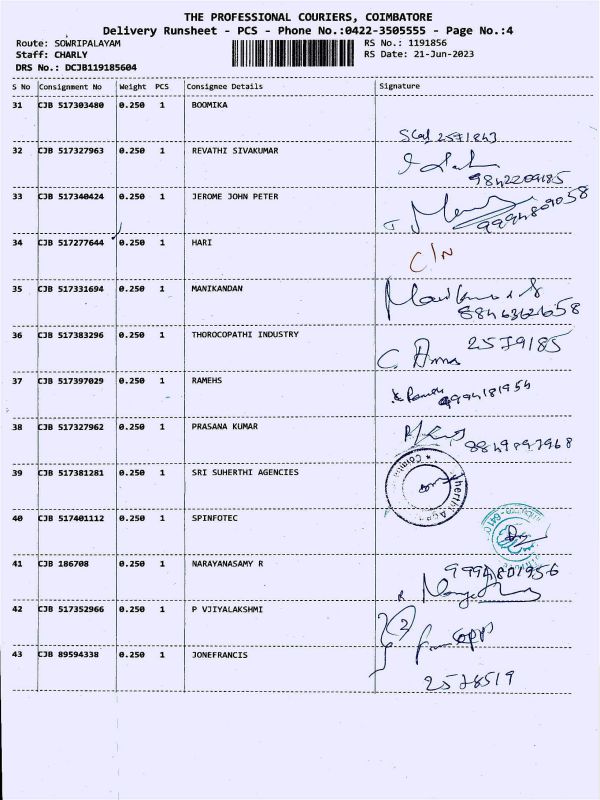 THE PROFESSIONAL COURIERS, COIMBATORE
Delivery Runsheet - PCS - Phone No.:0422-3505555 - Page No.:4
Route: SOWRIPALAYAM RS No.: 1191856
Staff: CHARLY RS Date: 21-Jun-2023
DRS No.: DCJB119185604
S No Consignment No Weight PCS Consignee Details Signature
31 CJB 517303480 0.250 1 BOOMIKA
2571843
32 CJB 517327963 0.250 1 REVATHI SIVAKUMAR
9842209185
33 CJB 517340424 0.250 1 JEROME JOHN PETER
9994809058
34 CJB 517277644 0.250 1 HARI
C/N
35 CJB 517331694 0.250 1 MANIKANDAN
36 CJB 517383296 0.250 1 THOROCOPATHI INDUSTRY
2579185
37 CJB 517397029 0.250 1 RAMEHS
9994181954
38 CJB 517327962 0.250 1 PRASANA KUMAR
39 CJB 517381281 0.250 1 SRI SUHERTHI AGENCIES
40 CJB 517401112 0.250 1 SPINFOTEC
41 CJB 186708 0.250 1 NARAYANASAMY R
9994801956
42 CJB 517352966 0.250 1 P VJIYALAKSHMI
43 CJB 89594338 0.250 1 JONEFRANCIS
2578519